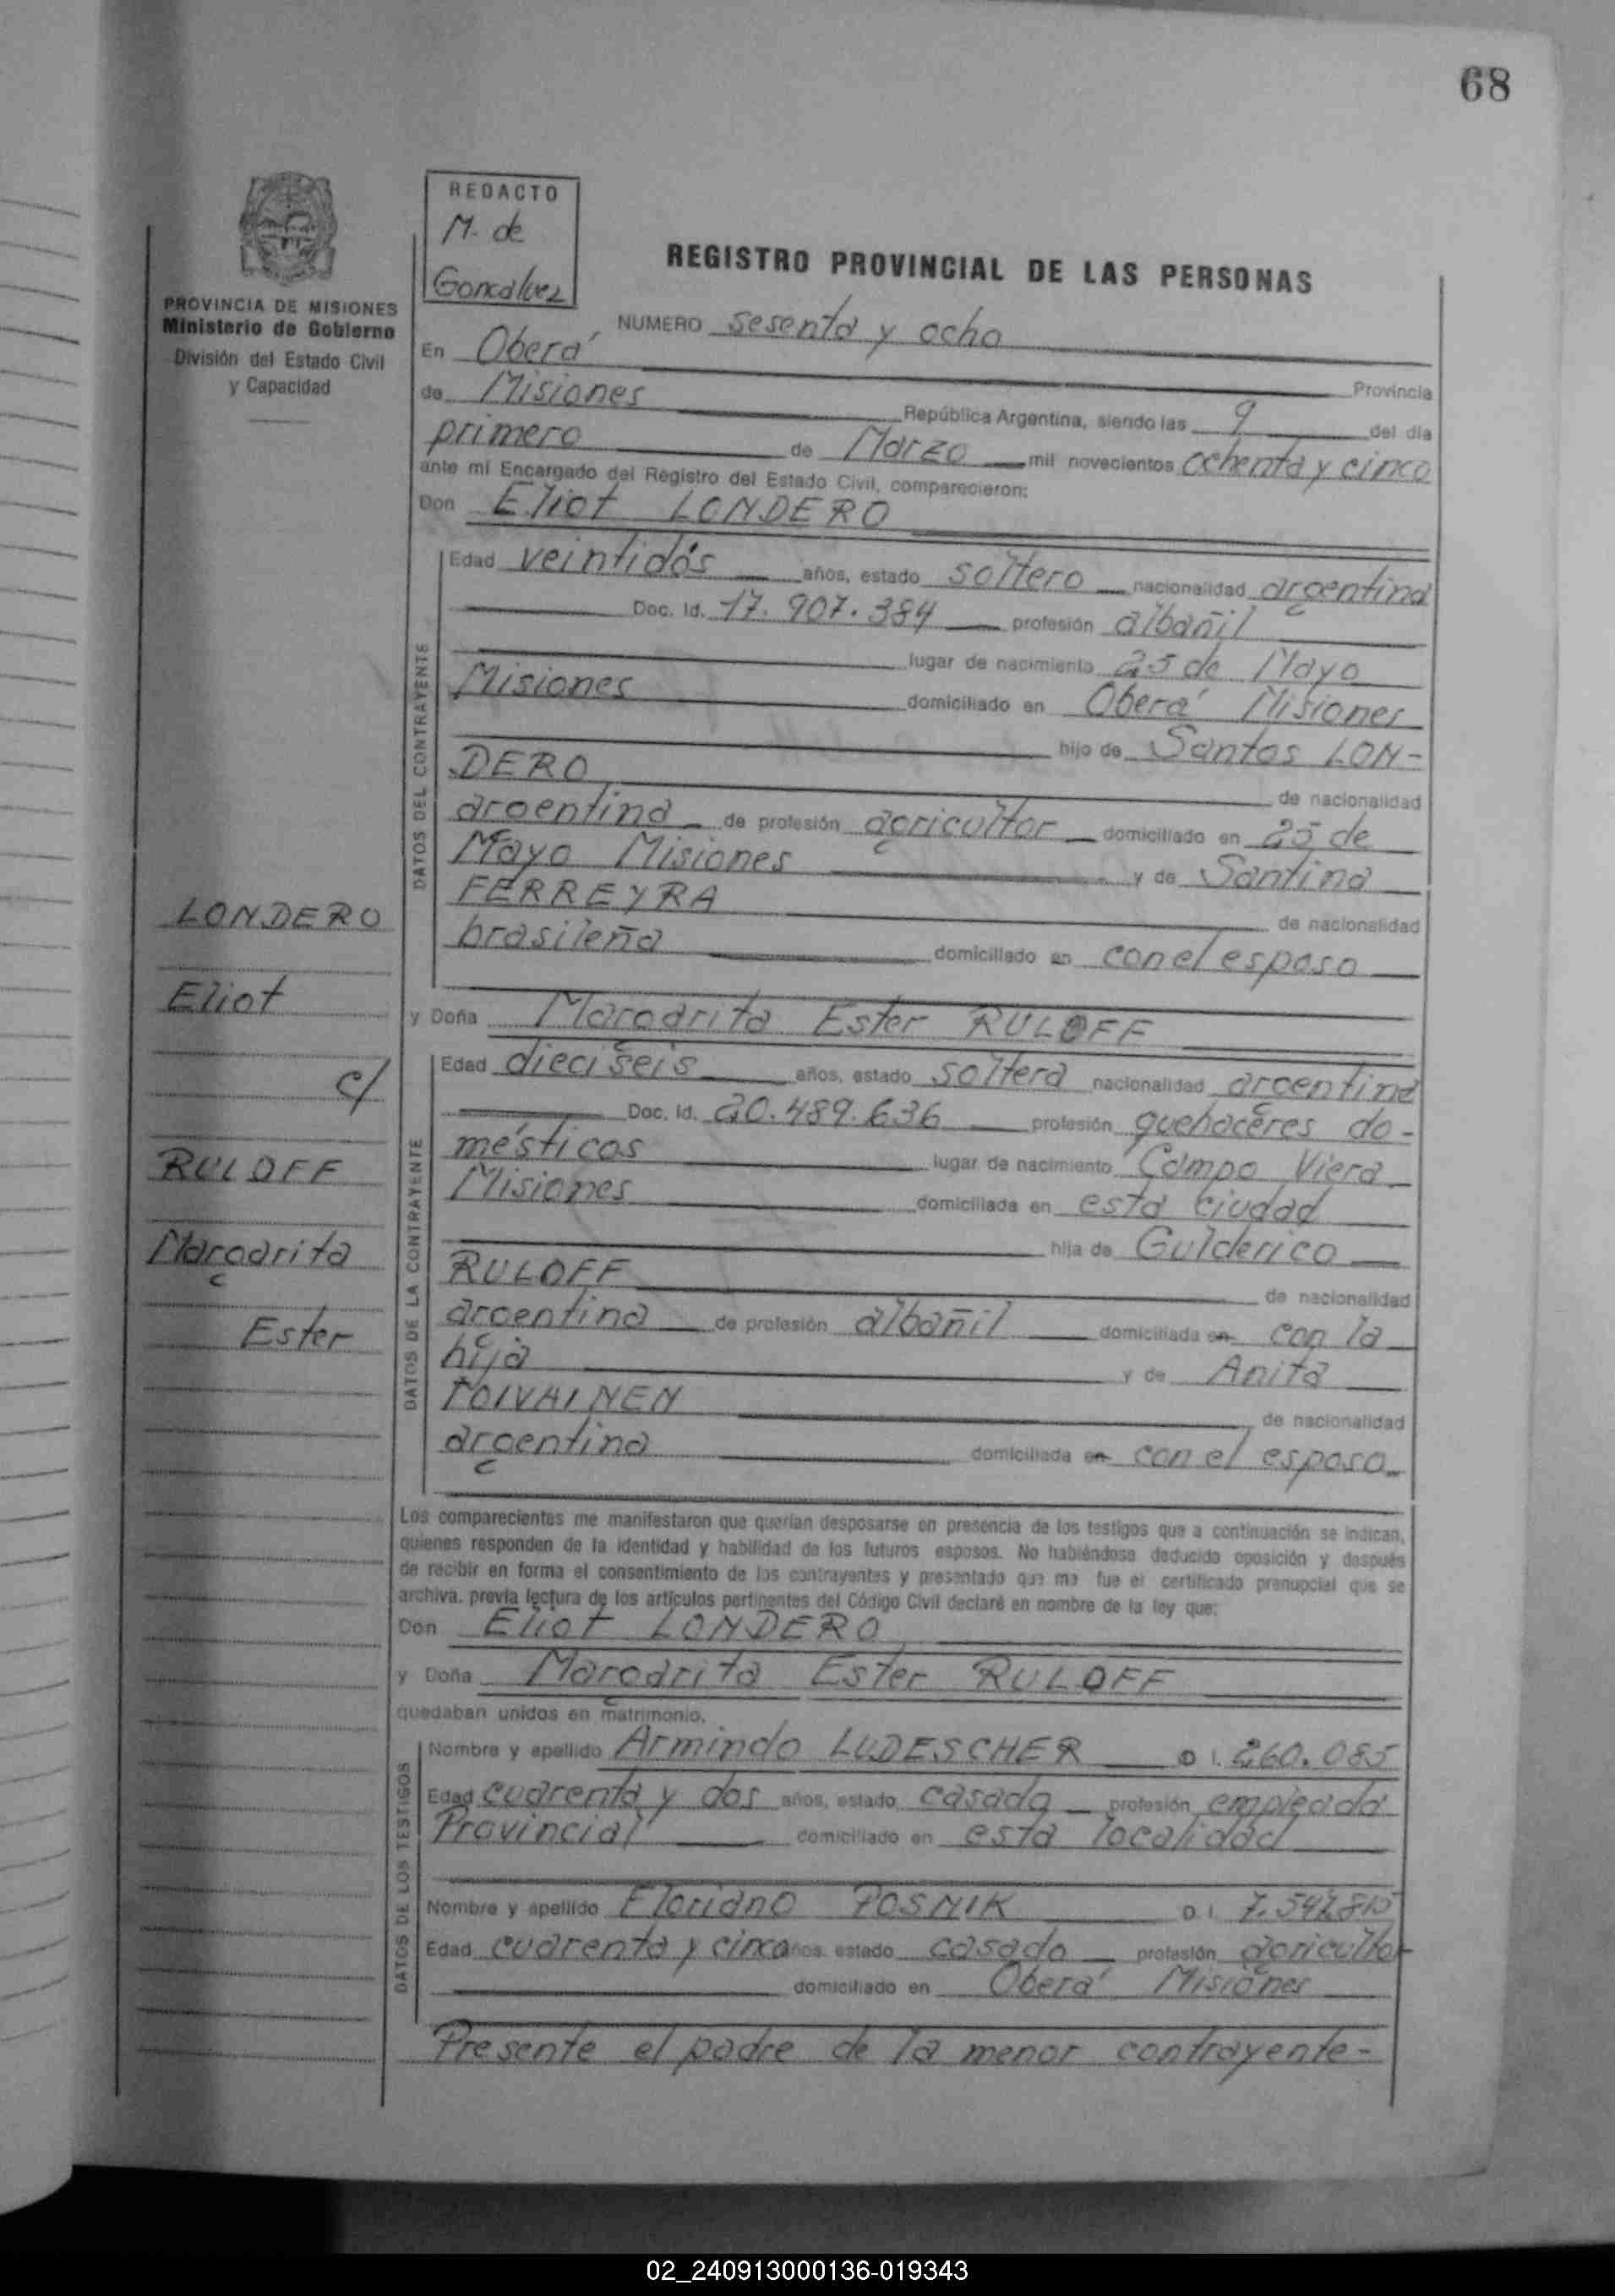 68
REDACTO
M. de
Goncalvez
PROVINCIA DE MISIONES
Ministerio de Gobierno
División del Estado Civil
y Capacidad
REGISTRO PROVINCIAL DE LAS PERSONAS
NUMERO sesenta y ocho
En Oberá Provincia
de Misiones República Argentina, siendo las 9 del día
primero de Marzo mil novecientos ochenta y cinco
ante mi Encargado del Registro del Estado Civil, comparecieron:
Don Eliot LONDERO
DATOS DEL CONTRAYENTE
Edad veintidós años, estado soltero nacionalidad argentina
Doc. Id. 17.907.384 profesión albañil
lugar de nacimiento 25 de Mayo
Misiones domiciliado en Oberá Misiones
hijo de Santos LON-
DERO de nacionalidad
argentina de profesión agricultor domiciliado en 25 de
Mayo Misiones y de Santina
FERREYRA de nacionalidad
brasileña domiciliado en con el esposo
y Doña Margarita Ester RULOFF
DATOS DE LA CONTRAYENTE
Edad dieciseis años, estado soltera nacionalidad argentina
Doc. Id. 20.489.636 profesión quehaceres do-
mésticos lugar de nacimiento Campo Viera
Misiones domiciliada en esta ciudad
hija de Gulderico
RULOFF de nacionalidad
argentina de profesión albañil domiciliada en con la
hija y de Anita
TOIVAINEN de nacionalidad
argentina domiciliada en con el esposo
Los comparecientes me manifestaron que querían desposarse en presencia de los testigos que a continuación se indican,
quienes responden de la identidad y habilidad de los futuros esposos. No habiéndose deducido oposición y después
de recibir en forma el consentimiento de los contrayentes y presentado que me fue el certificado prenupcial que se
archiva, previa lectura de los artículos pertinentes del Código Civil declaré en nombre de la ley que:
Don Eliot LONDERO
y Doña Margarita Ester RULOFF
quedaban unidos en matrimonio.
DATOS DE LOS TESTIGOS
Nombre y apellido Armindo LUDESCHER D I. 260.085
Edad cuarenta y dos años, estado casado profesión empleado
Provincial domiciliado en esta localidad
Nombre y apellido Floriano POSNIK D.I.
Edad cuarenta y cinco años estado casado profesión agricultor
domiciliado en Oberá Misiones
Presente el padre de la menor contrayente-
LONDERO
Eliot
c/
RULOFF
Margarita
Ester
02_240913000136-019343